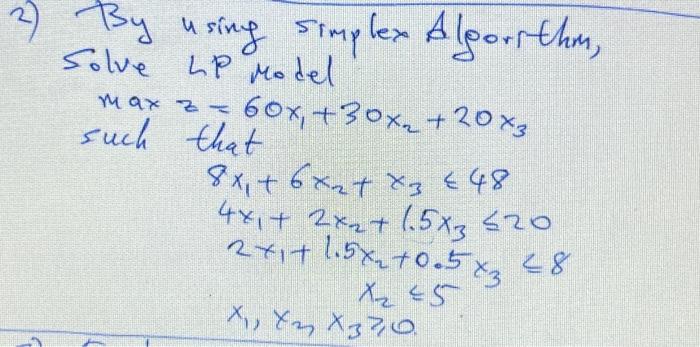 2) By using simplex Algorithm,
Solve LP Model
max z = 60x₁ + 30x₂ + 20x₃
such that
8x₁ + 6x₂ + x₃ ≤ 48
4x₁ + 2x₂ + 1.5x₃ ≤ 20
2x₁ + 1.5x₂ + 0.5x₃ ≤ 8
x₂ ≤ 5
x₁, x₂, x₃ ≥ 0.